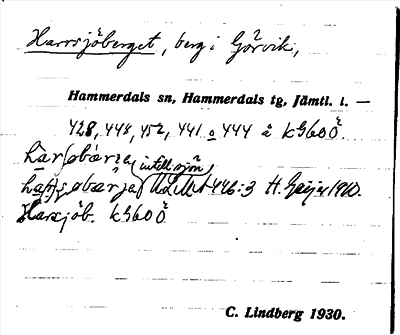 Harrsjöberget, berg i Görvik,
Hammerdals sn, Hammerdals tg, Jämtl. l. —
428, 448, 452, 441 o 444 å kG60Ö.
(intill sjön)
ULMA 446:3 H. Geijer 1910.
Harsjöb. kG60Ö
C. Lindberg 1930.